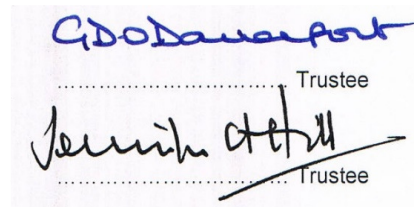 GDODavenport
........................................ Trustee
Jennifer
........................................ Trustee